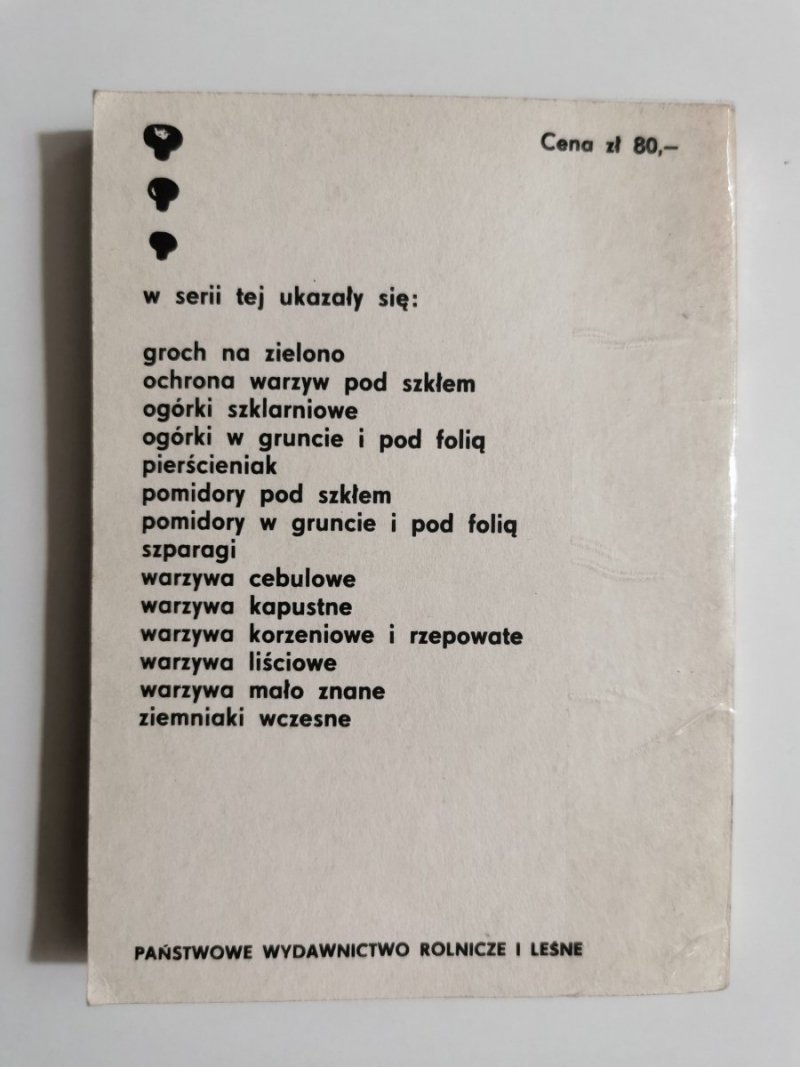 Cena zł 80,—
w serii tej ukazały się:
groch na zielono
ochrona warzyw pod szkłem
ogórki szklarniowe
ogórki w gruncie i pod folią
pierścieniak
pomidory pod szkłem
pomidory w gruncie i pod folią
szparagi
warzywa cebulowe
warzywa kapustne
warzywa korzeniowe i rzepowate
warzywa liściowe
warzywa mało znane
ziemniaki wczesne
PAŃSTWOWE WYDAWNICTWO ROLNICZE I LEŚNE